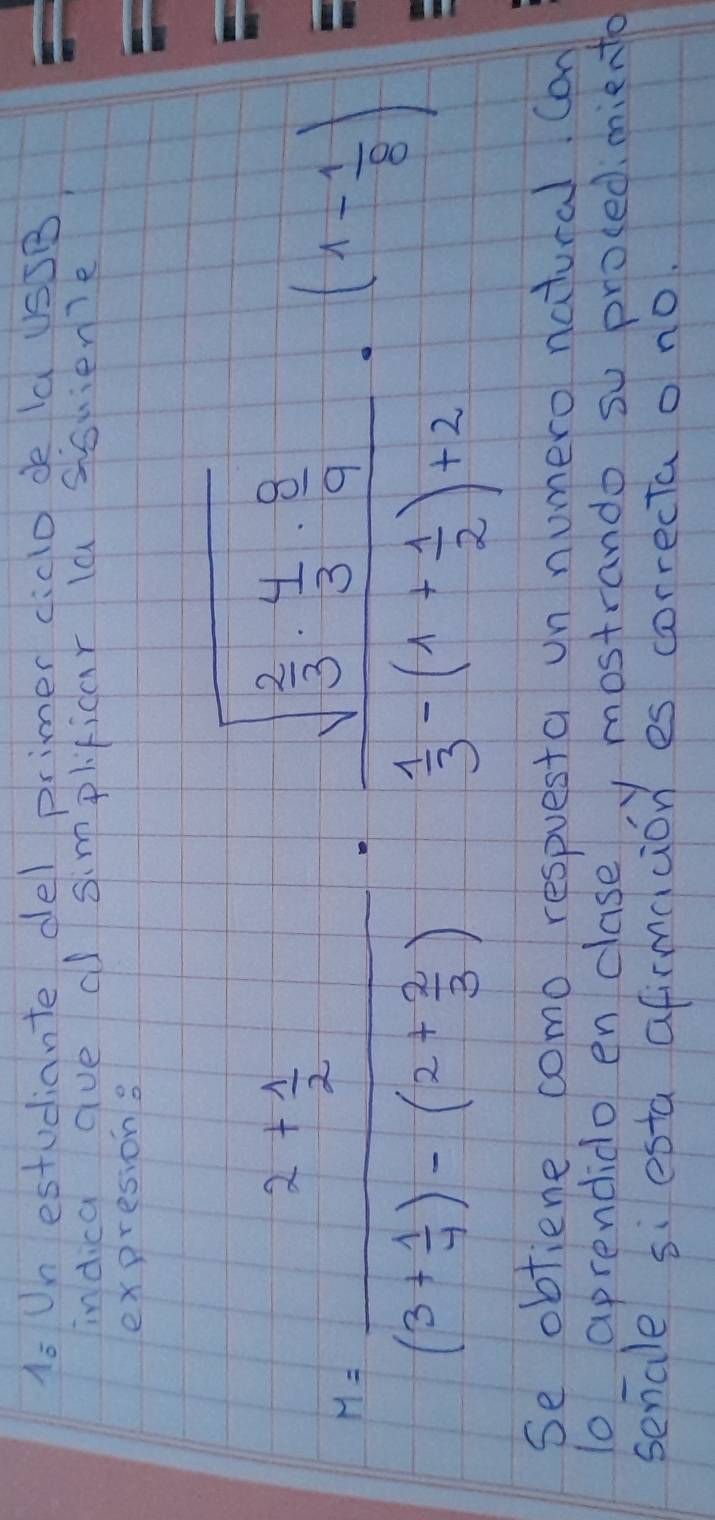 1. Un estudiante del primer ciclo de la USJB,
indica que al simplificar la siguiente
expresión:
M = (2 + 1/2) / ((3 + 1/4) - (2 + 2/3)) . √(2/3 . 4/3 . 8/9) / (1/3 - (1 + 1/2) + 2) . (1 - 1/8)
Se obtiene como respuesta un numero natural. Con
lo aprendido en clase y mostrando su procedimiento
señale si esta afirmación es correcta o no.